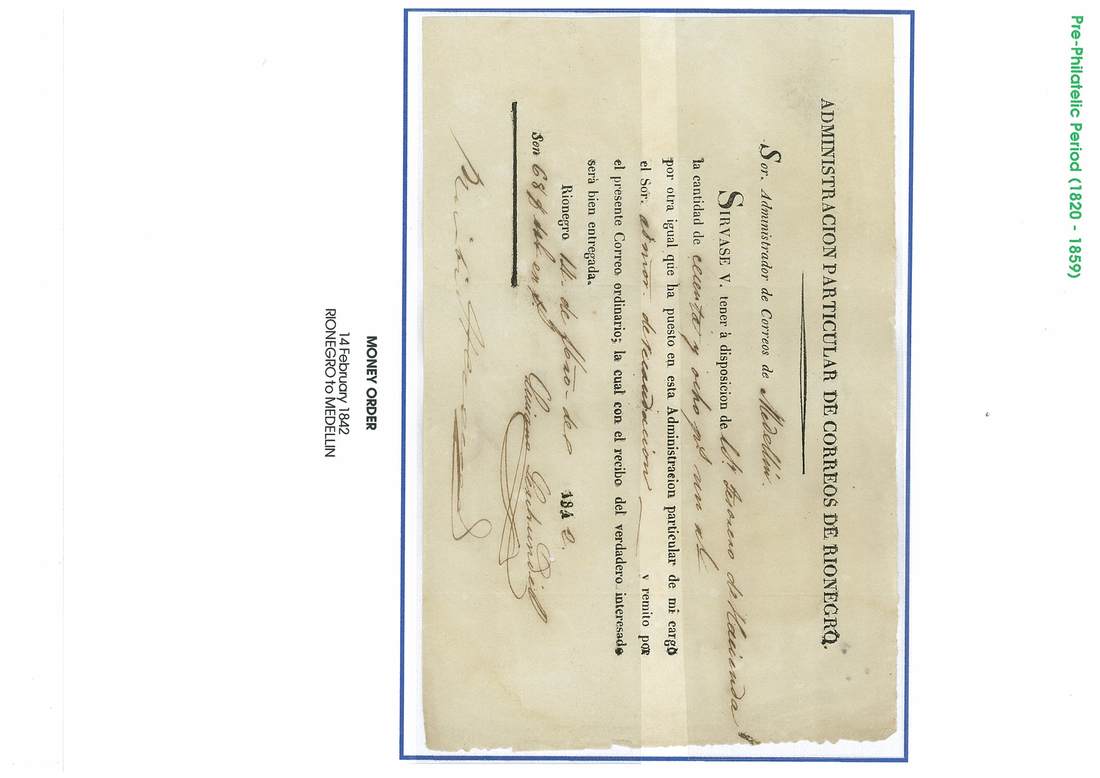 Pre-Philatelic Period (1820 - 1859)
ADMINISTRACION PARTICULAR DE CORREOS DE RIONEGRO.
Sor. Administrador de Correos de Medellin.
SIRVASE V. tener à disposicion de tesorero de Hacienda
la cantidad de y ocho
por otra igual que ha puesto en esta Administracion particular de mi cargo
el Sor. admor. de recaudacion y remito por
el presente Correo ordinario; la cual con el recibo del verdadero interesado
será bien entregada.
Rionegro 14. de de 1842.
Son 68
MONEY ORDER
14 February 1842
RIONEGRO to MEDELLIN